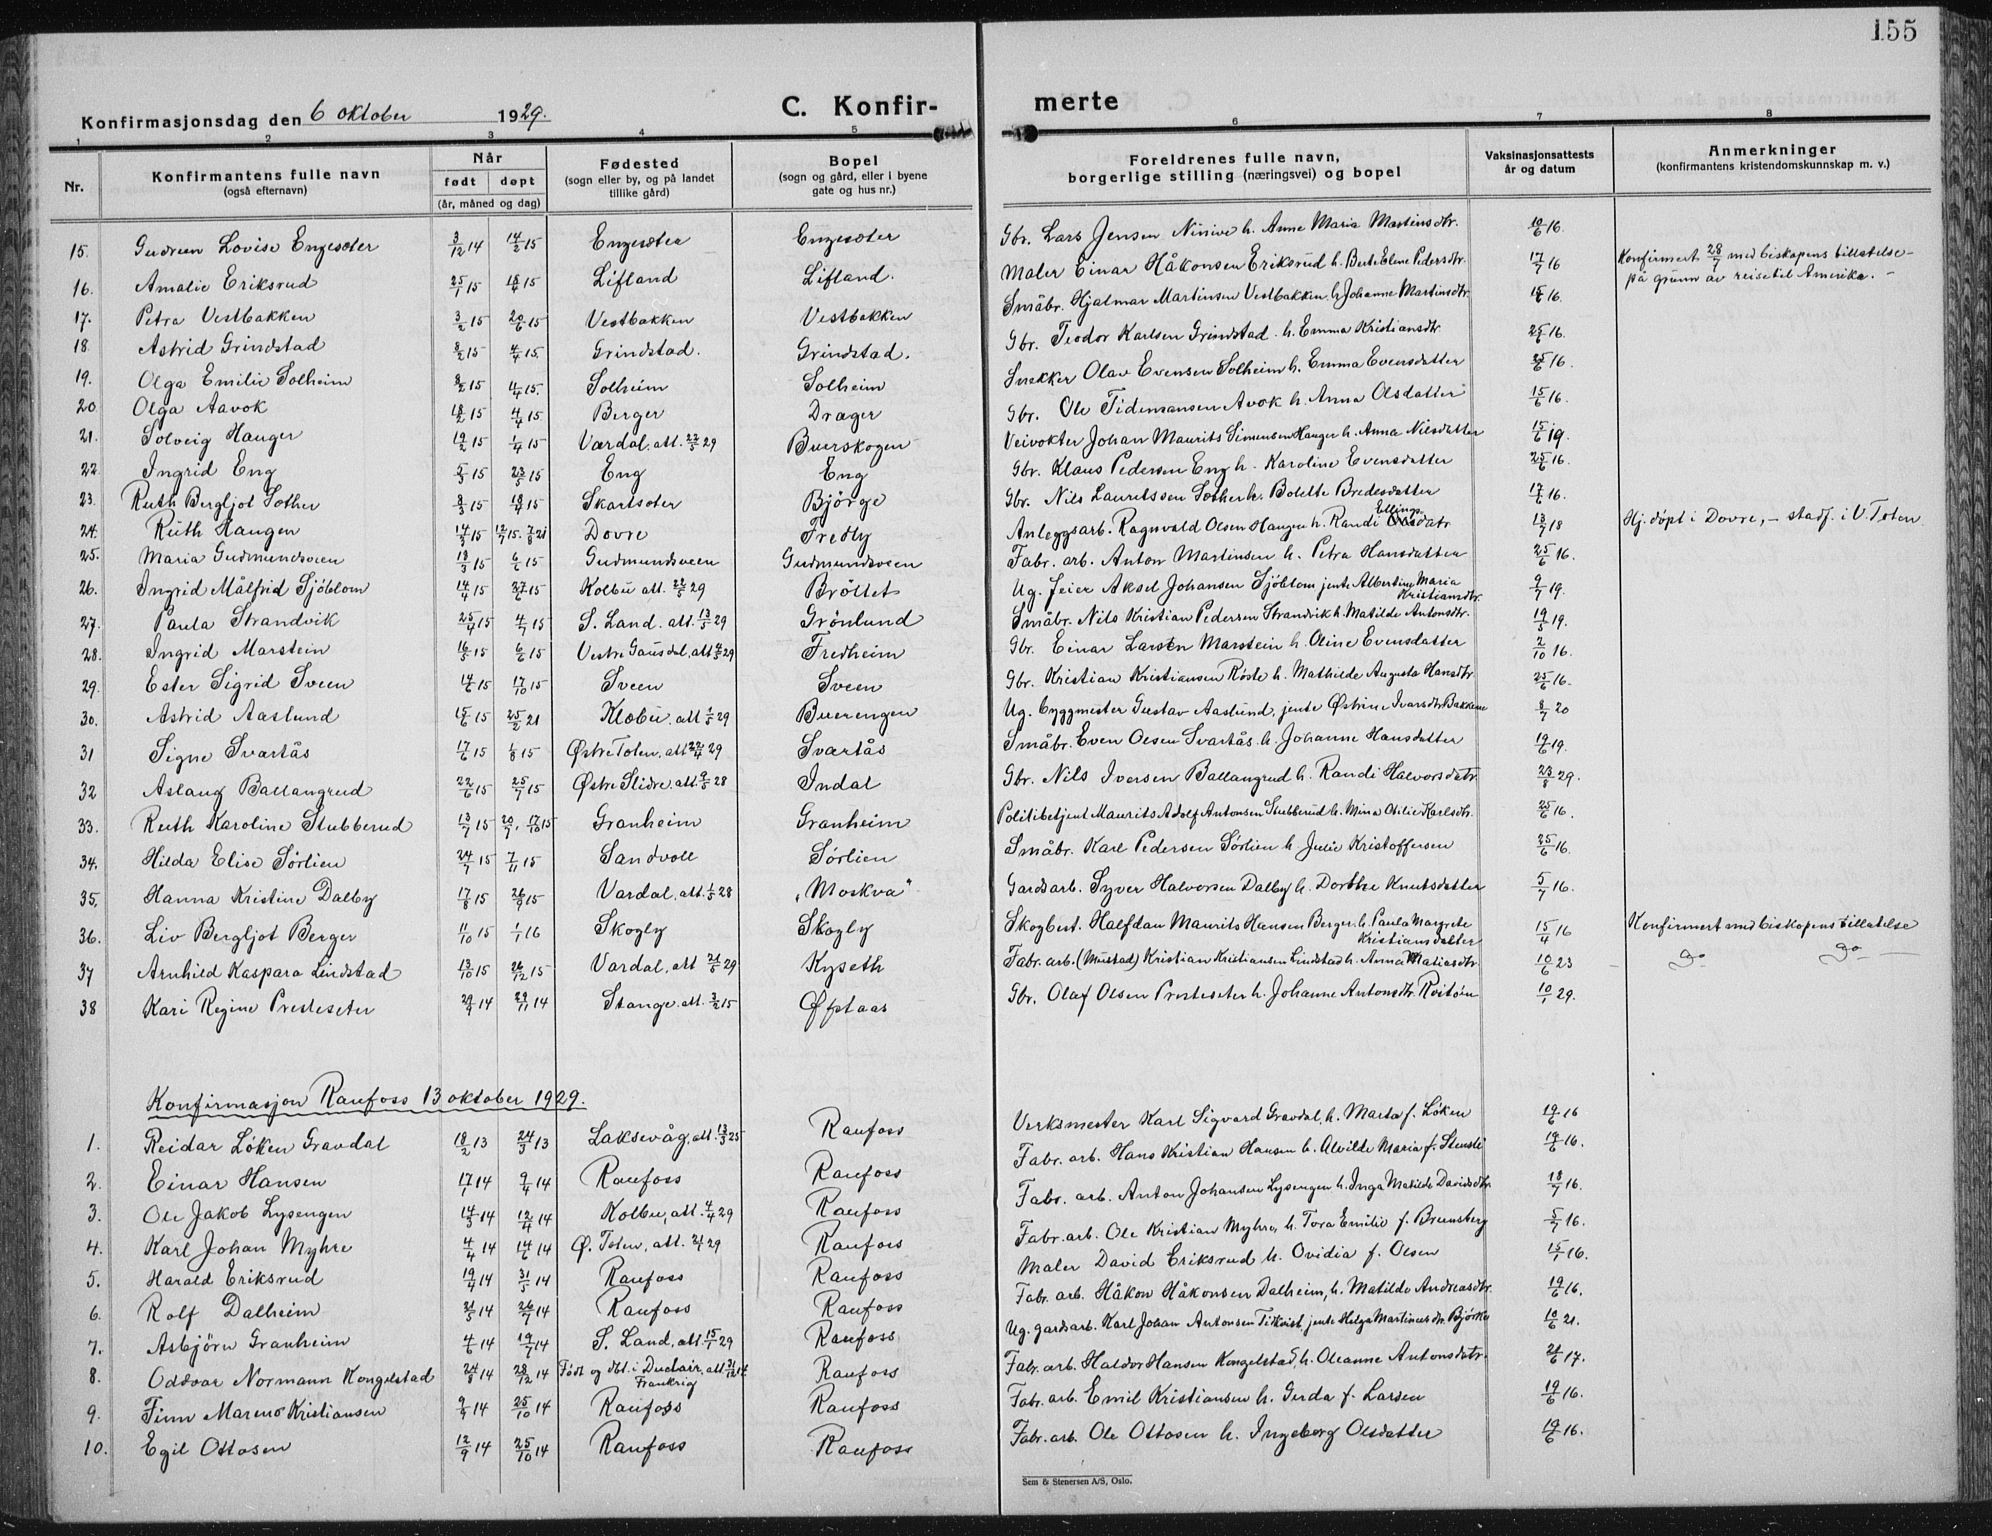 155
Konfirmasjonsdag den 6 oktober 1929. C. Konfirmerte
1 2 3 4 5 6 7 8
Nr. Konfirmantens fulle navn (også efternavn) Når født døpt (år, måned og dag) Fødested (sogn eller by, og på landet tillike gård) Bopel (sogn og gård, eller i byene gate og hus nr.) Foreldrenes fulle navn, borgerlige stilling (næringsvei) og bopel Vaksinasjonsattests år og datum Anmerkninger (konfirmantens kristendomskunnskap m. v.)
15. Gudrun Lovise Engesæter 3/12 14 14/2 15 Engesæter Engesæter Gbr. Lars Jensen Ninive h. Anne Maria Martinsdtr. 10/6 16.
16. Amalie Eriksrud 25/1 15 18/4 15 Lifland Lifland. Maler Einar Håkonsen Eriksrud h. Berte Eline Pedersdtr. 17/7 16 Konfirmert 28/7 med biskopens tillatelse på grunn av reise til Amerika. -
17. Petra Vestbakken 3/2 15 20/6 15 Vestbakken Vestbakken Småbr. Hjalmar Martinsen Vestbakken h. Johanne Martinsdtr. 15/6 16.
18 Astrid Grindstad 8/2 15 4/4 15. Grindstad. Grindstad. Gbr. Teodor Karlsen Grindstad. h. Emma Kristiansdtr 25/6 16.
19. Olga Emilie Solheim 8/2 15 4/4 15. Solheim Solheim Snekker Olav Evensen Solheim h. Emma Evensdatter 25/6 16.
20 Olga Aavok 18/2 15 4/4 15 Berger Drager Gbr. Ole Tidemansen Avok h. Anna Olsdatter 15/6 16.
21. Solveig Hauger 19/2 15 1/4 15 Værdal, att. 23/5 29 Buerskogen Veivokter Johan Maurits Simensen Hauger h. Anna Nilsdatter 15/6 19.
22. Ingrid Eng 5/3 15 23/5 15 Eng Eng Gbr. Klaus Pedersen Eng h. Karoline Evensdatter 25/6 16.
23. Ruth Bergljot Sother 8/3 15 18/4 15 Skartseter Bjørge Gbr. Nils Lauritssen Sother h. Bolette Bredesdatter 17/6 16.
24. Ruth Haugen 14/3 15 12/7 15. 7/8 21 Dovre Fredly Anleggsarb. Ragnvald Olsen Haugen h. Randi Ellingsdatr 13/7 18 Hj. døpt i Dovre, - stadf. i V. Toten
25. Maria Gudmundsveen 18/3 15 6/6 15 Gudmundsveen Gudmundsveen Fabr. arb. Anton Martinsen h. Petra Hansdatter 25/6 16.
26. Ingrid Målfrid Sjöblom 14/4 15 27/6 15 Kolbu att. 22/5 29 Bröttet Ug. feier Aksel Johansen Sjöblom jente Albertine Maria Kristiansdtr. 9/7 19.
27. Paula Strandvik 25/4 15 4/7 15 S. Land. att. 13/5 29 Grönlund Småbr. Nils Kristian Pedersen Strandvik h. Matilde Antonsdtr. 19/5 19.
28. Ingrid Marstein 16/5 15 6/6 15 Vestre Gausdal, att 4/5 29 Fredheim Gbr. Einar Larsen Marstein h. Oline Evensdatter 2/10 16.
29. Ester Sigrid Sveen 14/6 15 17/10 15 Sveen Sveen Gbr. Kristian Kristiansen Røste h. Mathilde Augusta Hansdtr 25/6 16.
30. Astrid Aaslund 15/6 15 25/2 21 Klæbu, att 1/5 29 Buerengen Ug. byggmester Gustav Aaslund, jente Østrine Ivarsdtr Bakkene 8/7 20
31 Signe Svartås 17/6 15 1/8 15 Østre Toten, att 22/4 29 Svartås Småbr. Even Olsen Svartås. h. Johanne Hansdatter 19/6 19.
32 Aslaug Ballangrud 22/6 15 25/7 15 Østre Slidre, att. 9/5 28 Indal Gbr. Nils Iversen Ballangrud h. Randi Halvorsdatr. 23/8 29.
33. Ruth Karoline Stubberud 13/7 15 20/7. 17/10 15 Granheim Granheim Politibetjent Maurits Adolf Antonsen Stubberud h. Mina Otilie Karlsdtr. 25/6 16.
34. Hilda Elise Sørlien 24/7 15 7/11 15 Sandvoll Sørlien Småbr. Karl Pedersen Sørlien h. Julie Kristoffersen 25/6 16.
35. Hanna Kristine Dalby 17/8 15 26/9 15 Vardal, att. 1/5 28 „Moskva" Gardsarb. Syver Halvorsen Dalby h. Dorthe Knutsdatter 5/7 16.
36. Liv Bergljot Berger 11/10 15 1/1 16 Skogly Skogly Skogbest. Halfdan Maurits Hansen Berger h. Paula Margrete Kristiansdatter 15/4 16 Konfirmert med biskopens tillatelse
37 Arnhild Kaspara Lindstad 13/10 15 26/12 15 Vardal, att 21/5 29 Kyseth Fabr. arb. (Mustad) Kristian Kristiansen Lindstad h. Anna Matiasdtr. 10/6 23 - Do Do -
38 Kari Regine Presteseter 29/9 14 29/11 14 Stange. att. 3/2 15 Øfstaas Gbr. Olaf Olsen Presteseter h. Johanne Antonsdtr. Roitøm 10/1 29.
Konfirmasjon Raufoss 13 oktober 1929.
1. Reidar Löken Gravdal 18/2 13 24/3 13 Laksevåg, att. 13/3 25 Raufoss Verksmester Karl Sigvard Gravdal, h. Marta f. Løken 19/6 16
2. Einar Hansen 17/1 14 9/4 14 Raufoss Raufoss Fabr. arb. Hans Kristian Hansen h. Alvilde Maria f. Stensli 19/6 16.
3. Ole Jakob Lysengen 14/3 14 12/4 14 Kolbu, att. 4/4 29 Raufoss Fabr. arb. Anton Johansen Lysengen h. Inga Matilde Davidsdtr. 18/7 16.
4. Karl Johan Myhre 4/4 14 14/6 14 Ø. Toten, att. 2/1 29 Raufoss Fabr. arb. Ole Kristian Myhre, h. Tora Emilie f. Brunsberg 5/7 16.
5. Harald Eriksrud 19/4 14 31/5 14 Raufoss Raufoss Maler David Eriksrud h. Ovidia f. Olsen 15/1 16.
6. Rolf Dalheim 21/5 14 26/7 14 Raufoss Raufoss Fabr. arb. Håkon Håkonsen Dalheim, h. Matilde Andreasdtr. 19/6 16.
7. Asbjörn Granheim 4/6 14 19/7 14 S. Land, att. 15/1 29 Raufoss Ug. gardsarb. Karl Johan Antonsen Titkvist, jente Helga Martinesdtr. Bjørke 10/6 21.
8. Oddvar Normann Kongelstad 24/8 14 28/12 14 Født og dbt. i Duclair, att 31/12 14 Frankrig Raufoss Fabr. arb. Haldor Hansen Kongelstad, h. Oleanne Antonsdatr. 21/6 17.
9. Finn Marenø Kristiansen 9/9 14 25/10 14 Raufoss Raufoss Fabr. arb. Emil Kristiansen h. Gerda f. Larsen 19/6 16.
10. Egil Ottosen 12/9 14 25/10 14 Raufoss Raufoss Fabr. arb. Ole Ottosen h. Ingeborg Olsdatter 19/6 16.
Sem & Stenersen A/S, Oslo.